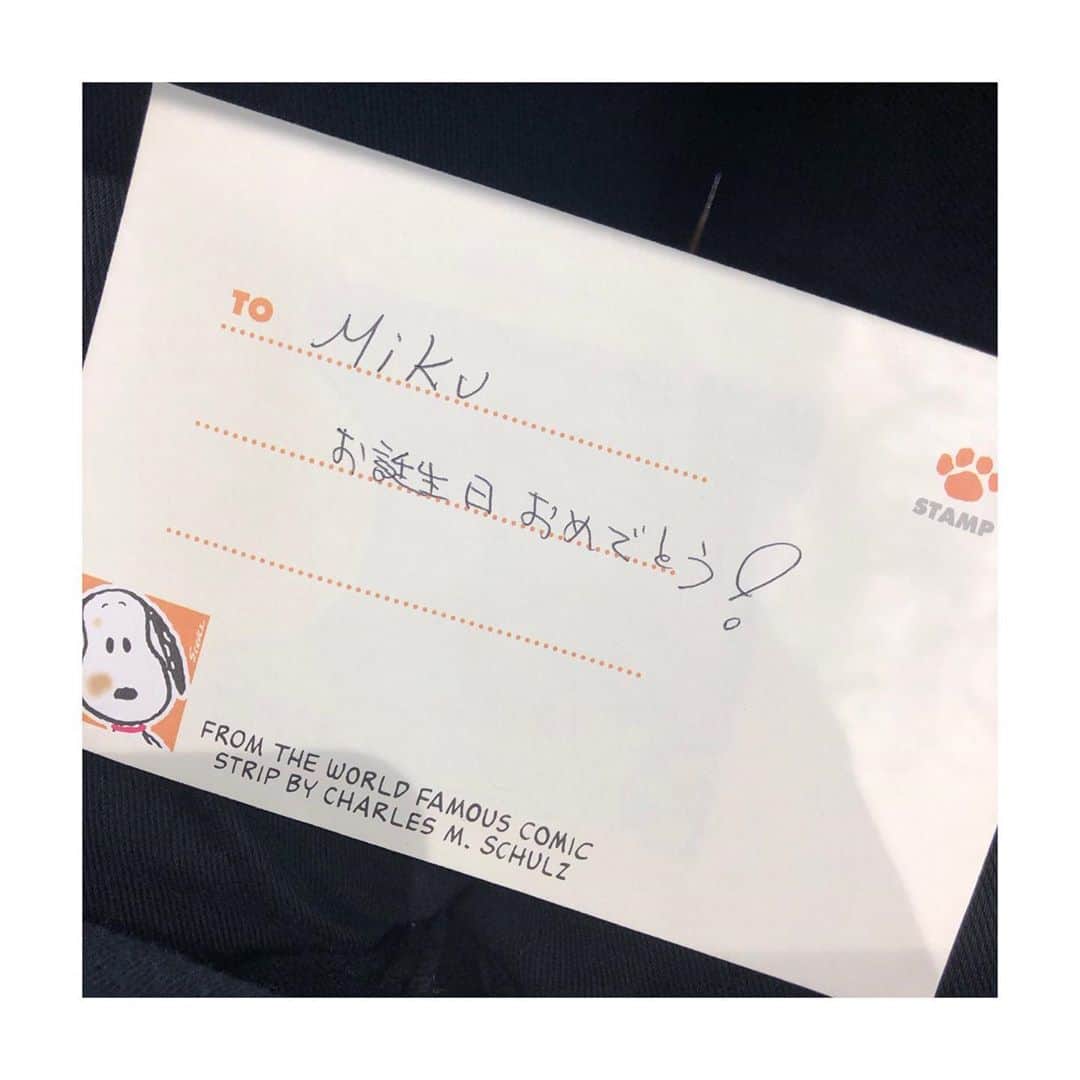 TO Miku
お誕生日 おめでとう!
STAMP
FROM THE WORLD FAMOUS COMIC
STRIP BY CHARLES M. SCHULZ